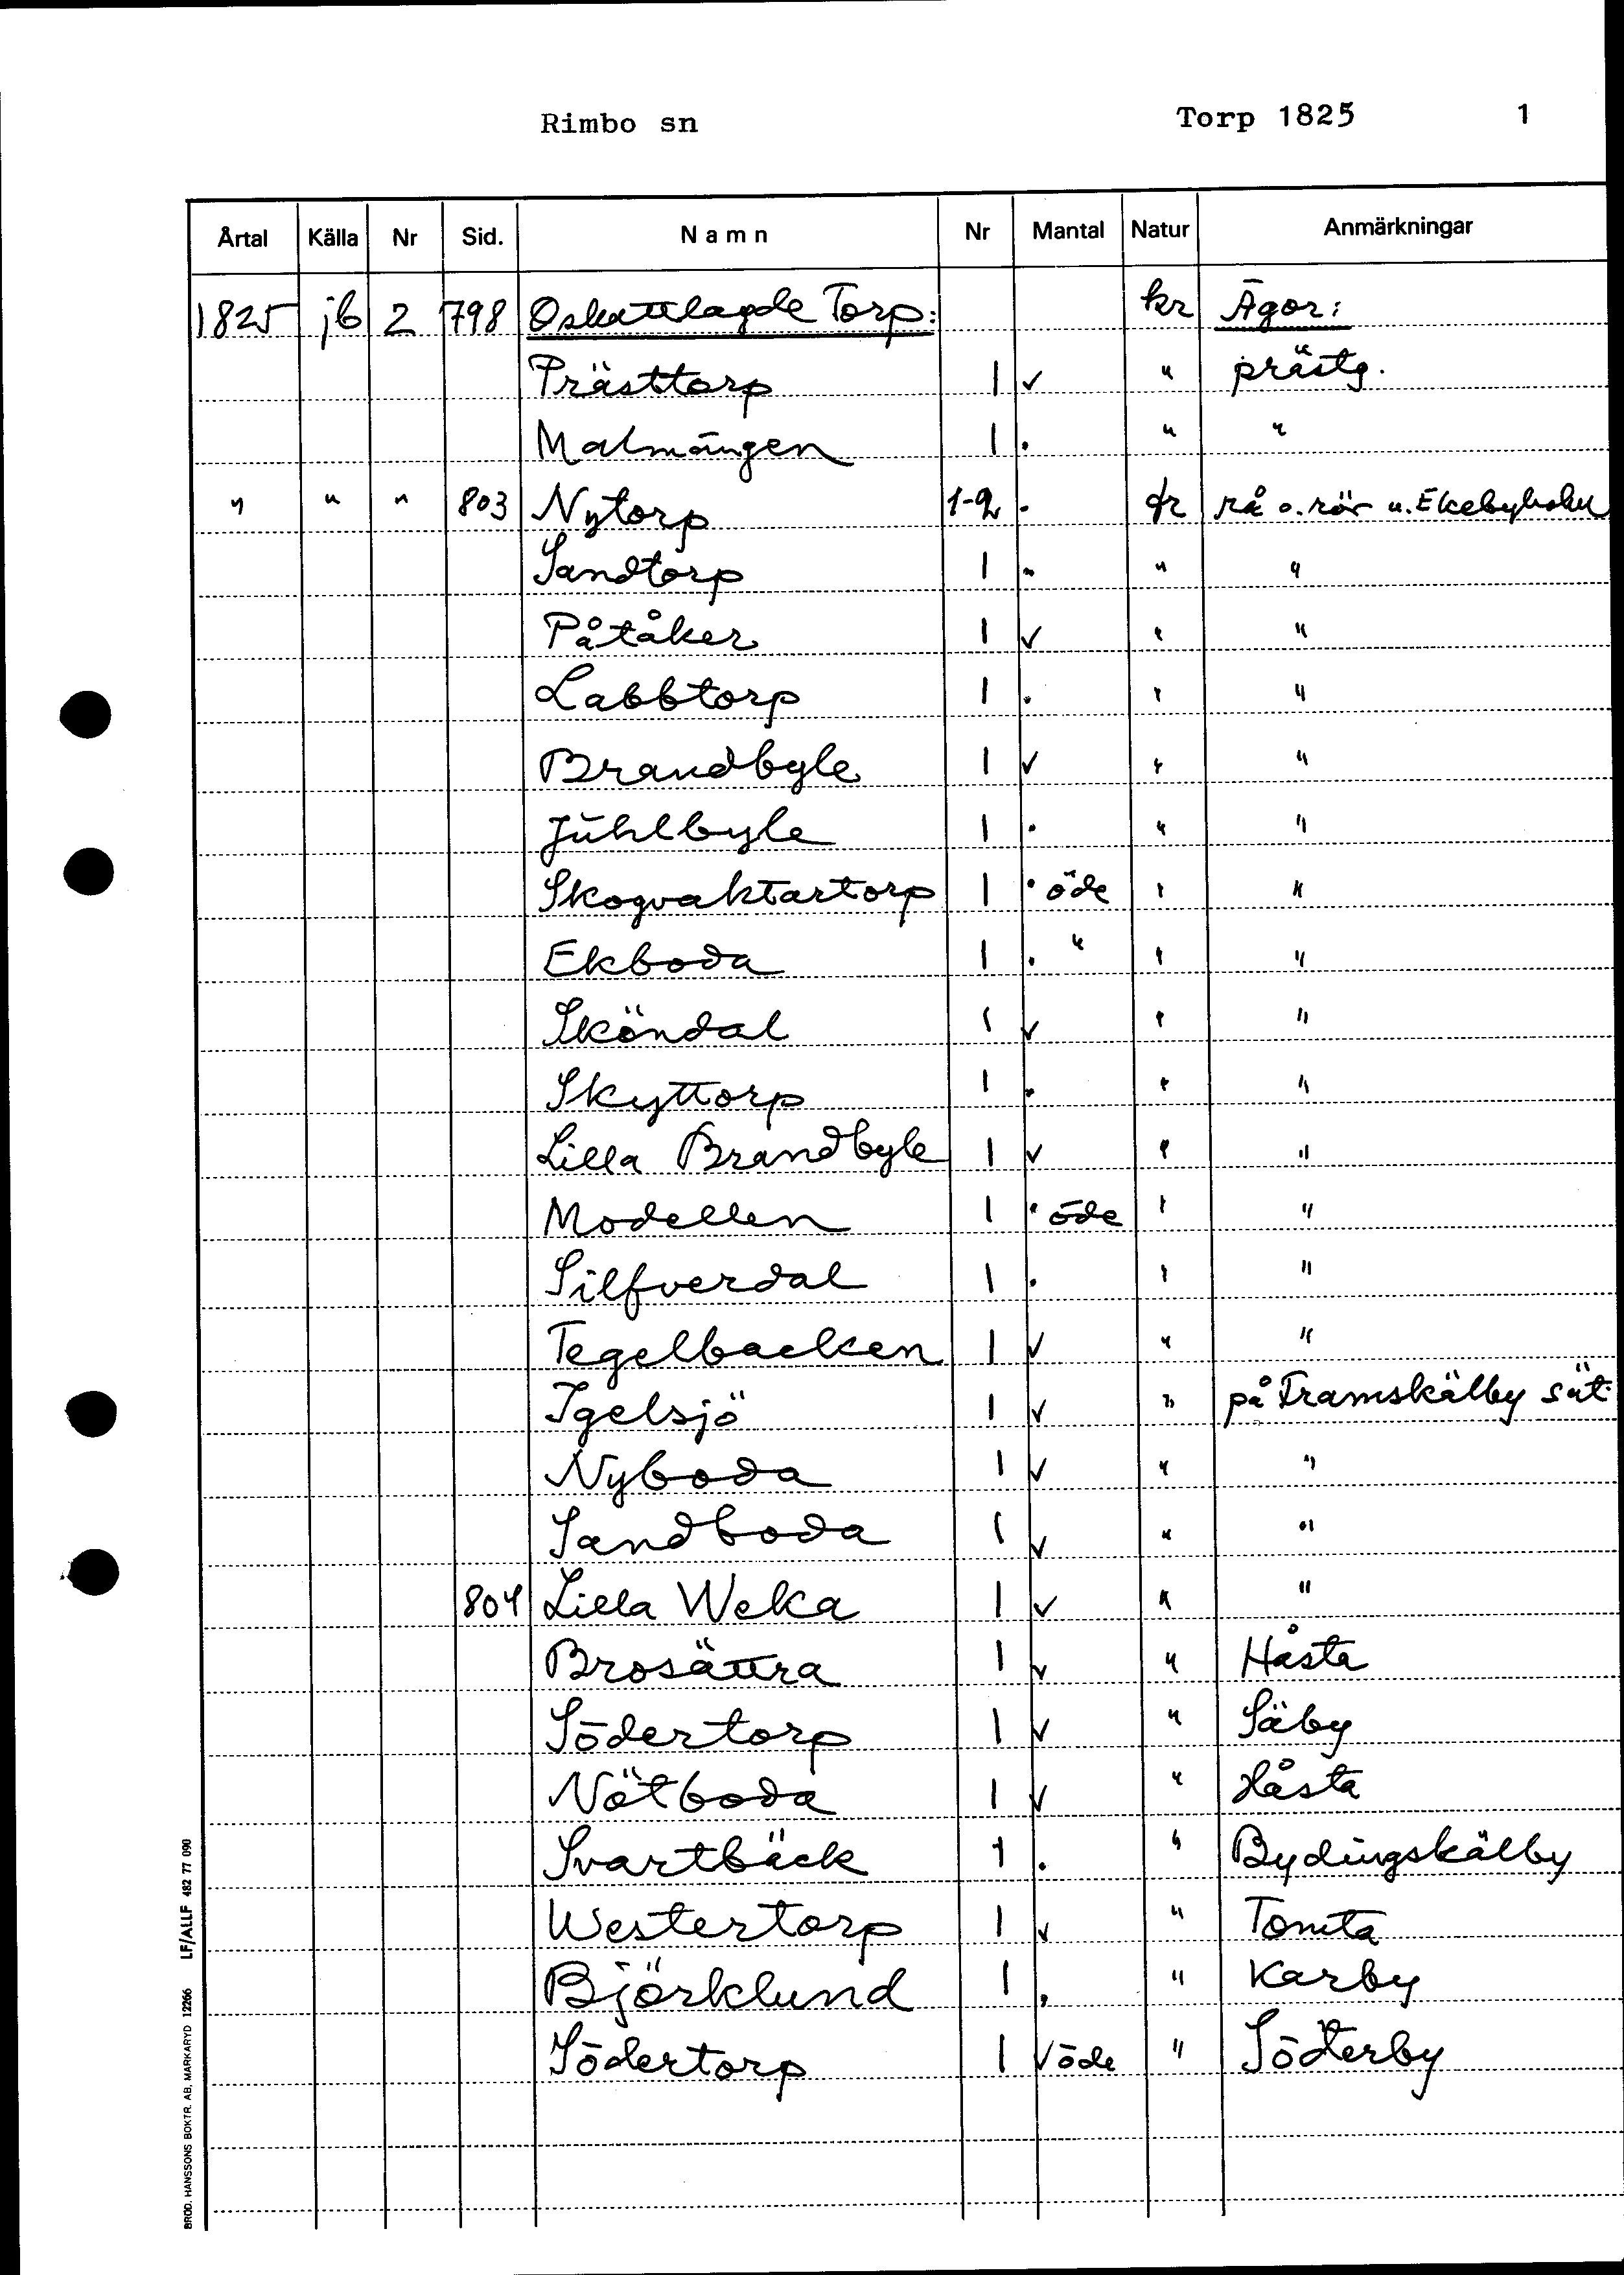 Rimbo sn Torp 1825 1
Årtal Källa Nr Sid. Namn Nr Mantal Natur Anmärkningar
1825 jb 2 798 Oskattlagde Torp: kr Ägor:
Prästtorp 1 ✓ " prästg.
Malmängen 1 . " "
" " " 803 Nytorp 1-2 . fr rå o. rör u. Ekebyholm
Sandtorp 1 . " "
Påtåker 1 ✓ " "
Labbtorp 1 . " "
Brandbyle 1 ✓ " "
Juhlbyle 1 . " "
Skogvaktartorp 1 . öde " "
Ekboda 1 . " " "
Sköndal 1 ✓ " "
Skyttorp 1 . " "
Lilla Brandbyle 1 ✓ " "
Modellen 1 . öde " "
Silfverdal 1 . " "
Tegelbacken 1 ✓ " "
Igelsjö 1 ✓ " på Framskälby sät.
Nyboda 1 ✓ " "
Sandboda 1 ✓ " "
804 Lilla Weka 1 ✓ " "
Brosättra 1 ✓ " Håsta
Södertorp 1 ✓ " Säby
Nötboda 1 ✓ " Håsta
Svartbäck 1 . " Bydingskälby
Westertorp 1 ✓ " Tomta
Björklund 1 . " Karby
Södertorp 1 ✓ öde " Söderby
BROD. HANSSONS BOKTR. AB, MARKARYD 12266 LF/ALLF 482 77 090